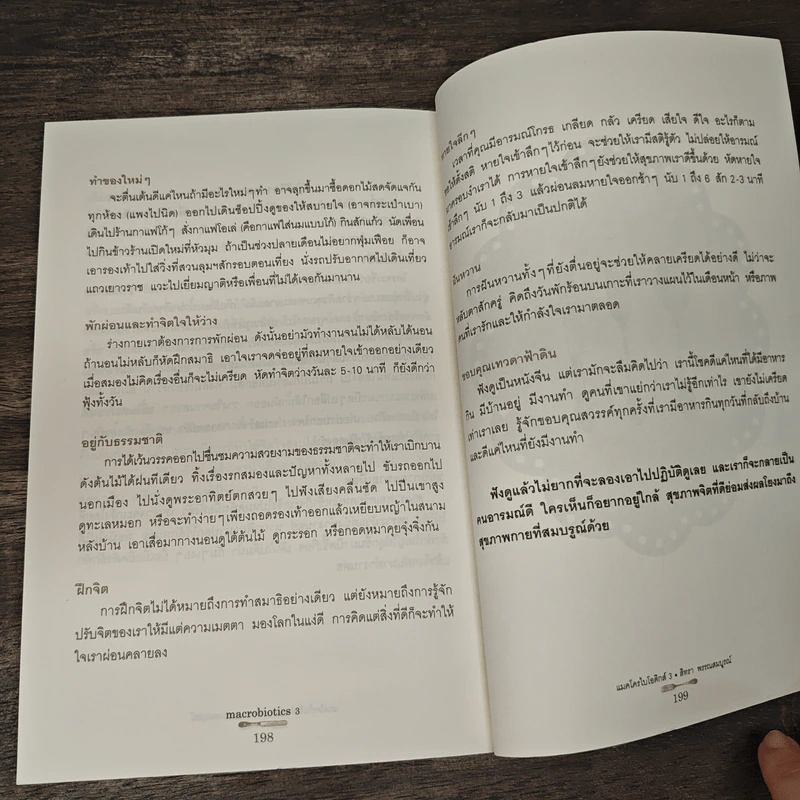 ทำของใหม่ๆ
จะตื่นเต้นดีแค่ไหนถ้ามีอะไรใหม่ๆทำ อาจลุกขึ้นมาซื้อดอกไม้สดจัดแจกัน
ทุกห้อง (แพงไปนิด) ออกไปเดินช็อปปิ้งดูของให้สบายใจ (อาจกระเป๋าเบา)
เดินไปร้านกาแฟโก้ๆ สั่งกาแฟโอเล่ (คือกาแฟใส่นมแบบโก้) กินสักแก้ว นัดเพื่อน
ไปกินข้าวร้านเปิดใหม่ที่หัวมุม ถ้าเป็นช่วงปลายเดือนไม่อยากฟุ่มเฟือย ก็อาจ
เอารองเท้าไปใส่วิ่งที่สวนลุมฯสักรอบตอนเที่ยง นั่งรถปรับอากาศไปเดินเที่ยว
แถวเยาวราช แวะไปเยี่ยมญาติหรือเพื่อนที่ไม่ได้เจอกันมานาน
พักผ่อนและทำจิตใจให้ว่าง
ร่างกายเราต้องการการพักผ่อน ดังนั้นอย่ามัวทำงานจนไม่ได้หลับได้นอน
ถ้านอนไม่หลับก็หัดฝึกสมาธิ เอาใจเราจดจ่ออยู่ที่ลมหายใจเข้าออกอย่างเดียว
เมื่อสมองไม่คิดเรื่องอื่นก็จะไม่เครียด หัดทำจิตว่างวันละ 5-10 นาที ก็ยังดีกว่า
ฟุ้งทั้งวัน
อยู่กับธรรมชาติ
การได้เว้นวรรคออกไปชื่นชมความสวยงามของธรรมชาติจะทำให้เราเบิกบาน
ดังต้นไม้ได้ฝนทีเดียว ทิ้งเรื่องรกสมองและปัญหาทั้งหลายไป ขับรถออกไป
นอกเมือง ไปนั่งดูพระอาทิตย์ตกสวยๆ ไปฟังเสียงคลื่นซัด ไปปีนเขาสูง
ดูทะเลหมอก หรือจะทำง่ายๆเพียงถอดรองเท้าออกแล้วเหยียบหญ้าในสนาม
หลังบ้าน เอาเสื่อมากางนอนดูใต้ต้นไม้ ดูกระรอก หรือกอดหมาคุยจุ๋งจิ๋งกัน
ฝึกจิต
การฝึกจิตไม่ได้หมายถึงการทำสมาธิอย่างเดียว แต่ยังหมายถึงการรู้จัก
ปรับจิตของเราให้มีแต่ความเมตตา มองโลกในแง่ดี การคิดแต่สิ่งที่ดีก็จะทำให้
ใจเราผ่อนคลายลง
macrobiotics 3
198
หายใจลึกๆ
เวลาที่คุณมีอารมณ์โกรธ เกลียด กลัว เครียด เสียใจ ดีใจ อะไรก็ตาม
ให้ตั้งสติ หายใจเข้าลึกๆไว้ก่อน จะช่วยให้เรามีสติรู้ตัว ไม่ปล่อยให้อารมณ์
มาครอบงำเราได้ การหายใจเข้าลึกๆยังช่วยให้สุขภาพเราดีขึ้นด้วย หัดหายใจ
เข้าลึกๆ นับ 1 ถึง 3 แล้วผ่อนลมหายใจออกช้าๆ นับ 1 ถึง 6 สัก 2-3 นาที
อารมณ์เราก็จะกลับมาเป็นปกติได้
ฝันหวาน
การฝันหวานทั้งๆที่ยังตื่นอยู่จะช่วยให้คลายเครียดได้อย่างดี ไม่ว่าจะ
หลับตาสักครู่ คิดถึงวันพักร้อนบนเกาะที่เราวางแผนไว้ในเดือนหน้า หรือภาพ
คนที่เรารักและให้กำลังใจเรามาตลอด
ขอบคุณเทวดาฟ้าดิน
ฟังดูเป็นหนังจีน แต่เรามักจะลืมคิดไปว่า เรานี้โชคดีแค่ไหนที่ได้มีอาหาร
กิน มีบ้านอยู่ มีงานทำ ดูคนที่เขาแย่กว่าเราไม่รู้อีกเท่าไร เขายังไม่เครียด
เท่าเราเลย รู้จักขอบคุณสวรรค์ทุกครั้งที่เรามีอาหารกินทุกวันที่กลับถึงบ้าน
และดีแค่ไหนที่ยังมีงานทำ
ฟังดูแล้วไม่ยากที่จะลองเอาไปปฏิบัติดูเลย และเราก็จะกลายเป็น
คนอารมณ์ดี ใครเห็นก็อยากอยู่ใกล้ สุขภาพจิตที่ดีย่อมส่งผลโยงมาถึง
สุขภาพกายที่สมบรูณ์ด้วย
แมคโครไบโอติกส์ 3 • สิทรา พรรณสมบูรณ์
199